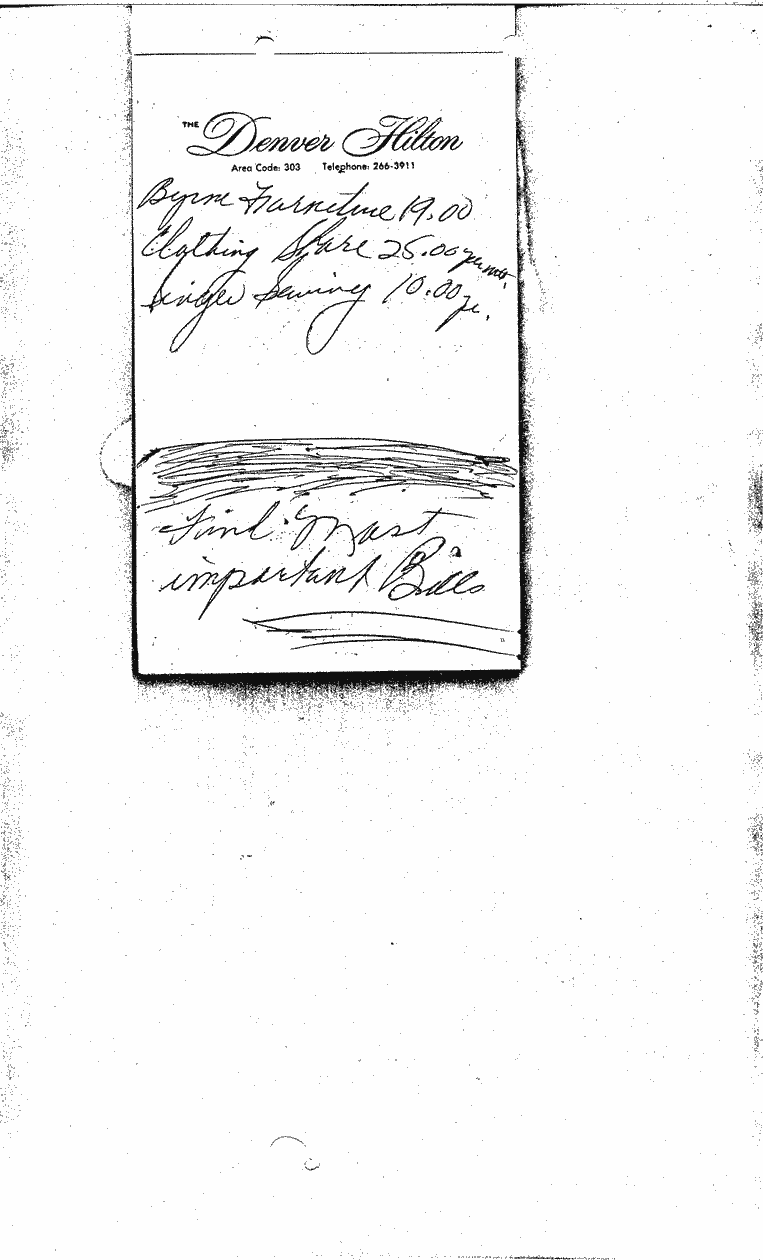 THE Denver Hilton
Area Code: 303 Telephone: 266-3911
Byrne Furneture 19.00
Clothing 25.00 per mo.
Singer Sewing 10.00
Find Most
important Bills